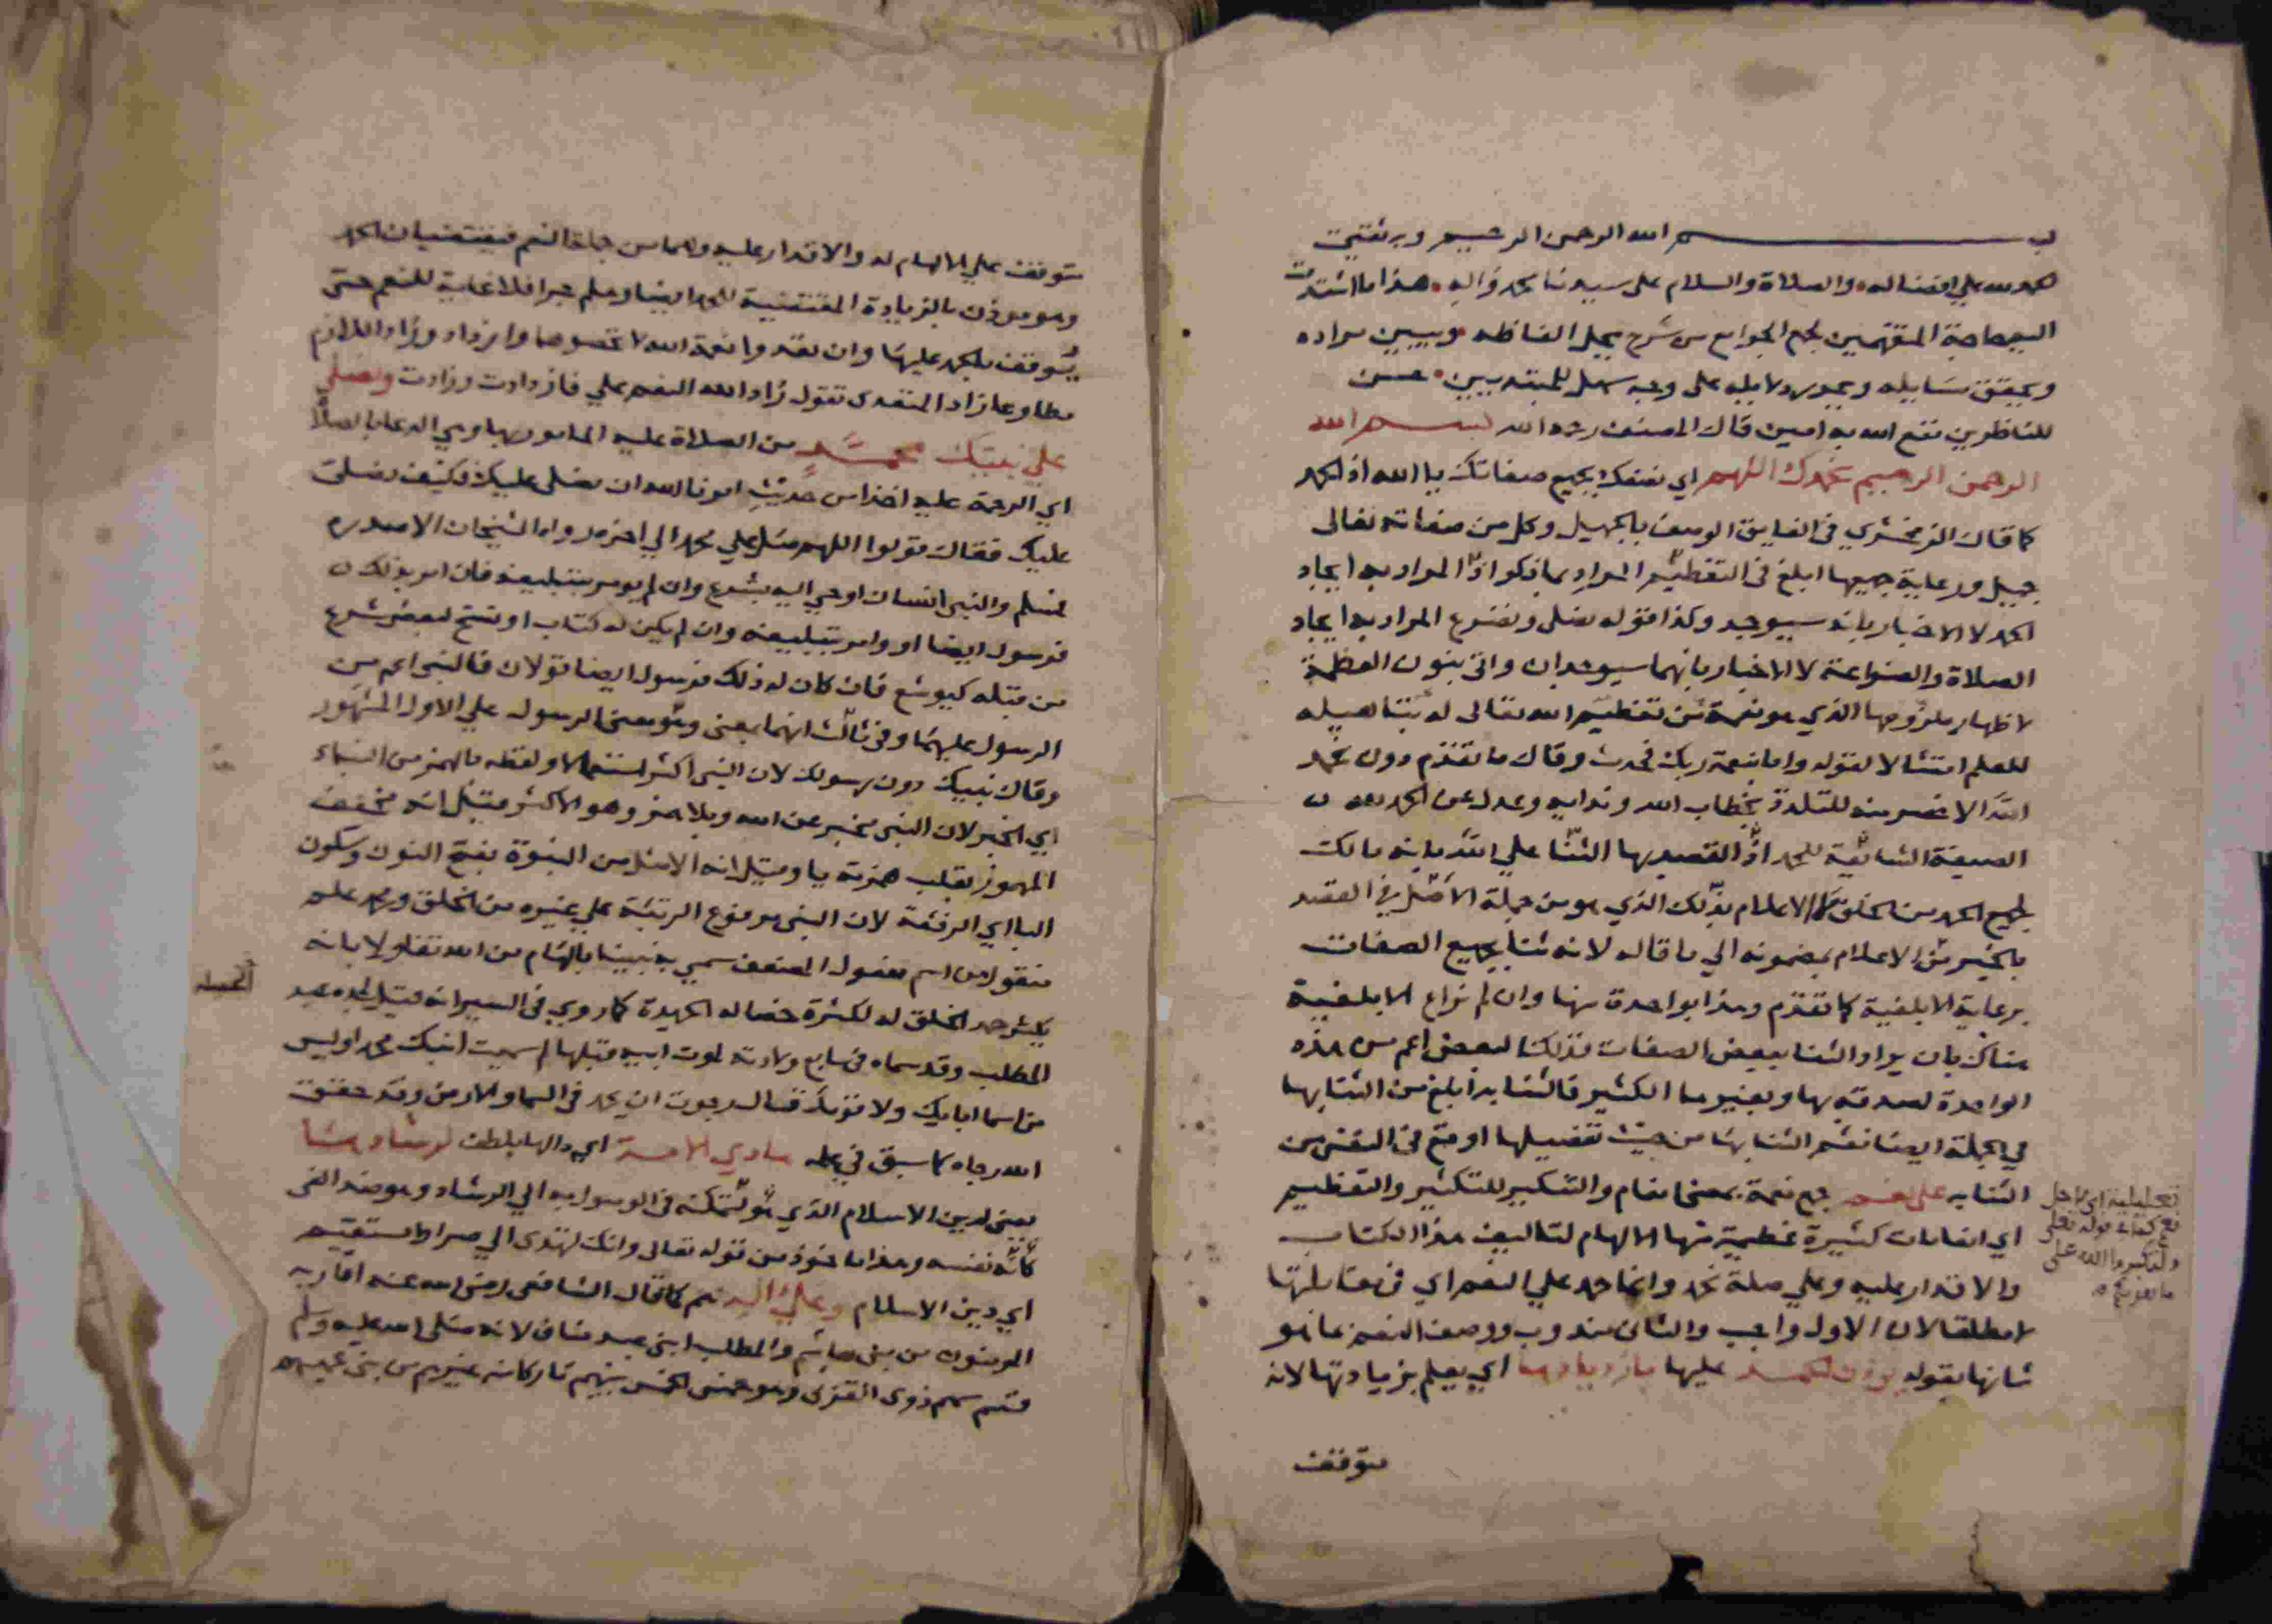 بسم الله الرحمن الرحيم وبه ثقتي
الحمد لله علي افضاله والصلاة والسلام على سيدنا محمد واله هذا ما اشتدت
اليه حاجة المتفهمين لجمع الجوامع من شرح يحل الفاظه ويبين مراده
ويحقق مسايله ويحرر دلايله على وجه سهل للمبتديين حسن
للناظرين نفع الله به امين قال المصنف رحمه الله بسم الله
الرحمن الرحيم نحمدك اللهم اي نصفك بجميع صفاتك يا الله اذ الحمد
كما قال الزمخشري في الفايق الوصف بالجميل وكل من صفاته تعالى
جميل ورعاية جميعها ابلغ في التعظيم المراد بما ذكر اذ المراد به ايجاد
الحمد لا الاخبار بانه سيوجد وكذا قوله نصلي ونضرع المراد به ايجاد
الصلاة والضراعة لا الاخبار بانهما سيوجدان واتى بنون العظمة
لاظهار ملزومها الذي هو نعمة من تعظيم الله تعالى له بتاهيله
للعلم امتثالا لقوله واما بنعمة ربك فحدث وقال ما تقدم دون نحمد
الله الاخصر منه للتلذذ بخطاب الله وندايه وعدل عن الحمد لله
الصيغة الشايعة للحمد اذ القصد بها الثنا علي الله بانه مالك
لجميع الحمد من الخلق لا الاعلام بذلك الذي هو من جملة الاصل في القصد
بالخبر من الاعلام بمضمونه الي ما قاله لانه ثنا بجميع الصفات
برعاية الابلغية كما تقدم وهذا بواحدة منها وان لم تراع الابلغية
هناك بان يراد الثنا ببعض الصفات فذلك البعض اعم من هذه
الواحدة لصدقه بها وبغيرها الكثير فالثنا به ابلغ من الثنا بها
في الجملة ايضا نعم الثنا بها من حيث تفصيلها اوقع في النفس من
الثنا به على نعم جمع نعمة بمعنى انعام والتنكير للتكثير والتعظيم
اي انعامات كثيرة عظيمة منها الالهام لتاليف هذا الكتاب
والاقدار عليه وعلي صلة نحمد وانما حمد علي النعم اي في مقابلتها
لا مطلقا لان الاول واجب والثاني مندوب ووصف النعم بما هو
شانها بقوله يوذن الحمد عليها بازديادها اي يعلم بزيادتها لانه
متوقف
تعليلية اي لاجل
نعم كما في قوله تعالى
ولتكبروا الله على
ما هديكم
متوقف علي الالهام له والاقدار عليه وهما من جملة النعم فيقتضيان الحمد
وهو موذن بالزيادة المقتضية للحمد ايضا وهلم جرا فلا غاية للنعم حتى
يتوقف بالحمد عليها وان تعدوا نعمة الله لا تحصوها وازداد وزاد اللازم
مطاوعا زاد المتعدى تقول زاد الله النعم علي فازدادت وزادت ونصلي
علي نبيك محمد من الصلاة عليه المامور بها وهي الدعا بالصلاة
اي الرحمة عليه اخذا من حديث امرنا الله ان نصلى عليك فكيف نصلى
عليك فقال قولوا اللهم صل علي محمد الي اخره رواه الشيخان الا صدره
فمسلم والنبي انسان اوحي اليه بشرع وان لم يومر بتبليغه فان امر بذلك
فرسول ايضا او وامر بتبليغه وان لم يكن له كتاب او نسخ لبعض شرع
من قبله كيوشع فان كان له ذلك فرسول ايضا قولان فالنبي اعم من
الرسول عليهما وفي ثالث انهما بمعنى وهو معنى الرسول علي الاول المشهور
وقال نبيك دون رسولك لان النبي اكثر استعمالا ولفظه بالهمز من النباء
اي الخبر لان النبي مخبر عن الله وبلا همز وهو الاكثر قيل انه مخفف
المهموز بقلب همزته يا وقيل انه الاصل من النبوة بفتح النون وسكون
الباء اي الرفعة لان النبي مرفوع الرتبة علي غيره من الخلق ومحمد علم
منقول من اسم مفعول المضعف سمي به نبينا بالهام من الله تفاولا بانه
يكثر حمد الخلق له لكثرة خصاله الحميدة كما روي في السير انه قيل لجده عبد
الجميلة
المطلب وقد سماه في سابع ولادته لموت ابيه قبلها لم سميت ابنك محمدا وليس
من اسما ابايك ولا قومك قال رجوت ان يحمد في السما والارض وقد حقق
الله رجاه كما سبق في علمه هادي الامة اي دالها بلطف لرشادها
يعني لدين الاسلام الذي هو لتمكنه في الوصول به الي الرشاد وهو ضد الغي
كانه نفسه وهذا ماخوذ من قوله تعالى وانك لتهدى الي صراط مستقيم
اي دين الاسلام وعلي اله هم كما قال الشافعى رضي الله عنه اقاربه
المومنون من بني هاشم والمطلب ابني عبد مناف لانه صلى الله عليه وسلم
قسم سهم ذوى القربى وهو خمس الخمس بينهم تاركا منه غيرهم من بني عميهم